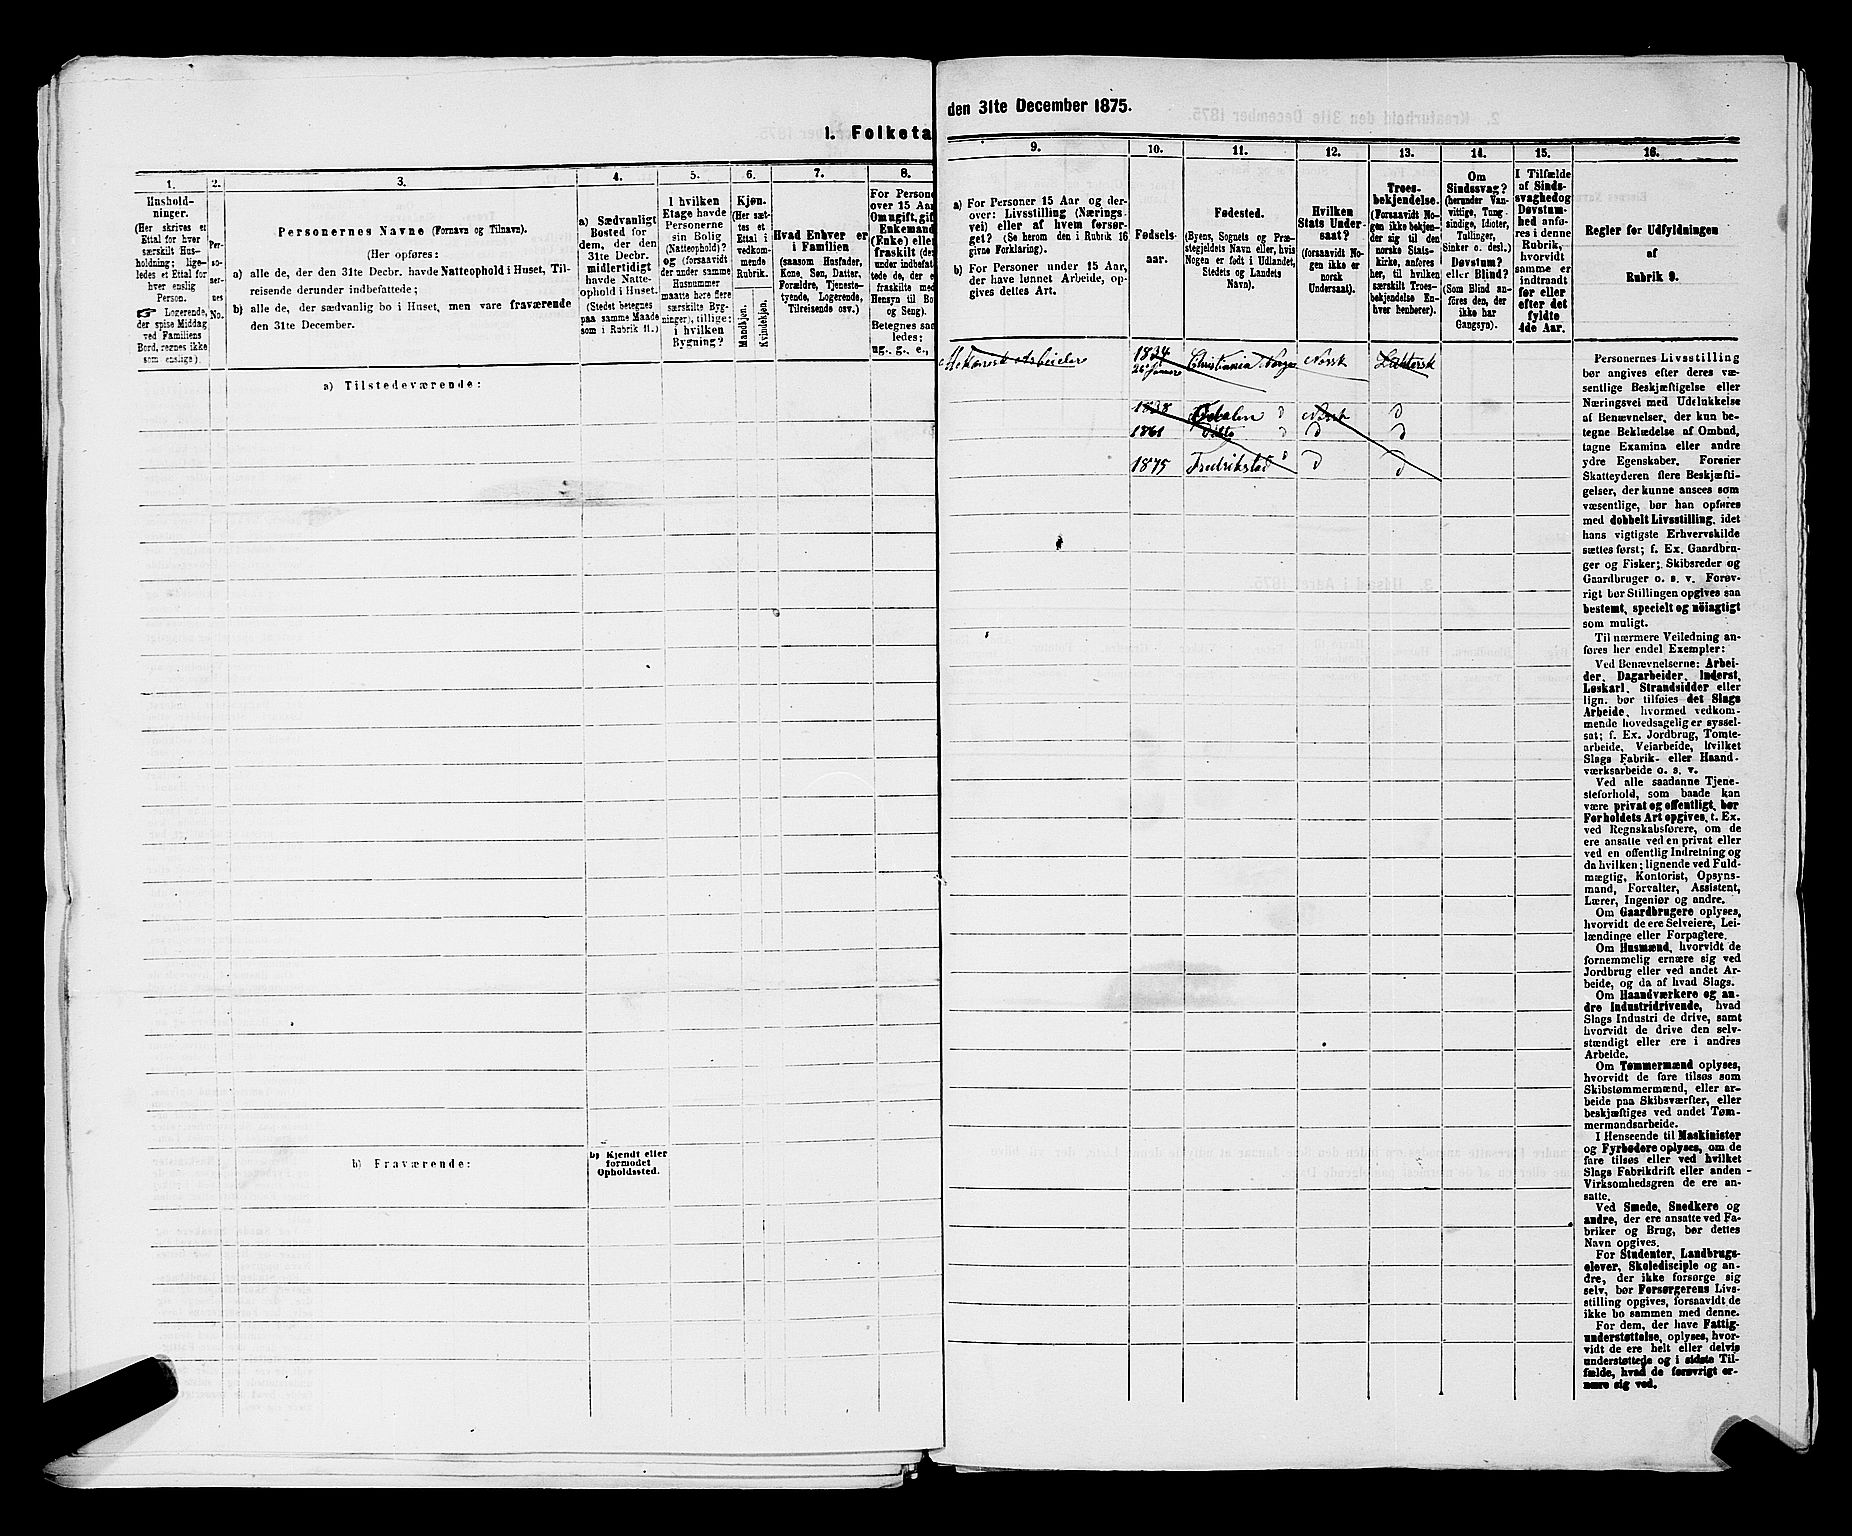 1. Folketæ
1.
2.
3.
4.
5.
6.
7.
8.
Hushold-
ninger.
(Her skrives et
Ettal for hver
særskilt Hus-
holdning; lige-
ledes et Ettal for
hver enslig
Person.
☞ Logerende,
der spise Middag
ved Familiens
Bord, regnes ikke
som enslige).
Per-
so-
ner-
nes
No.
Personernes Navne (Fornavn og Tilnavn).
(Her opføres:
a) alle de, der den 31te Decbr. havde Natteophold i Huset, Til-
reisende derunder indbefattede;
b) alle de, der sædvanlig bo i Huset, men vare fraværende
den 31te December.
a) Sædvanligt
Bosted for
dem, der den
31te Decbr.
midlertidigt
havde Natte-
ophold i Huset.
(Stedet betegnes
paa samme Maade
som i Rubrik 11.)
I hvilken
Etage havde
Personerne
sin Bolig
(Natteophold)?
og (forsaavidt
der under samme
Husnummer
maatte høre flere
særskilte Byg-
ninger), tillige:
i hvilken
Bygning?
Kjøn.
(Her sæt-
tes et
Ettal i
vedkom-
mende
Rubrik.
Mandkjøn.
Kvindekjøn.
Hvad Enhver er
i Familien
(saasom Husfader,
Kone, Søn, Datter,
Forældre, Tjeneste-
tyende, Logerende,
Tilreisende osv.)
For Persone
over 15 Aar
Om ugift, gift
Enkemand
(Enke) elle
fraskilt (de
under indbefatte
tede de, der e
fraskilte med
Hensyn til Bo
og Seng).
Betegnes saa
ledes:
ug., g., e.,
a) Tilstedeværende:
b) Fraværende:
b) Kjendt eller
formodet
Opholdssted.
den 31te December 1875.
9.
10.
11.
12.
13.
14.
15.
16.
a) For Personer 15 Aar og der-
over: Livsstilling (Nærings-
vei) eller af hvem forsør-
get? (Se herom den i Rubrik 16
givne Forklaring).
b) For Personer under 15 Aar,
der have lønnet Arbeide, op-
gives dettes Art.
Fødsels-
aar.
Fødested.
(Byens, Sognets og Præ-
stegjeldets Navn eller, hvis
Nogen er født i Udlandet,
Stedets og Landets
Navn).
Hvilken
Stats Under-
saat?
(forsaavidt No-
gen ikke er
norsk
Undersaat).
Troes-
bekjendelse.
(Forsaavidt No-
gen ikke bekjen-
der sig til den
norske Stats-
kirke, anføres
her, til hvilken
særskilt Troes-
bekjendelse En-
hver henhører).
Om
Sindssvag?
(herunder Van-
vittige, Tung-
sindige, Idioter,
Tullinger,
Sinker o. desl.)
Døvstum?
eller Blind?
(Som Blind an-
føres den, der
ikke har
Gangsyn).
I Tilfælde
af Sinds-
svaghed og
Døvstum-
hed anfø-
res i denne
Rubrik,
hvorvidt
samme er
indtraadt
før eller
efter det
fyldte
4de Aar.
Regler for Udfyldningen
af
Rubrik 9.
Mekanisk Arbeider
1834
26 Januar
Christiania Norge
Norsk
Luthersk
1838
Odalen
D
Norsk
D
1861
Ditto
D
D
D
1875
Fredrikstad
D
D
D
Personernes Livsstilling
bør angives efter deres væ-
sentlige Beskjæftigelse eller
Næringsvei med Udelukkelse
af Benævnelser, der kun be-
tegne Beklædelse af Ombud,
tagne Examina eller andre
ydre Egenskaber. Forener
Skatteyderen flere Beskjæfti-
gelser, der kunne ansees som
væsentlige, bør han opføres
med dobbelt Livsstilling, idet
hans vigtigste Erhvervskilde
sættes først; f. Ex. Gaardbru-
ger og Fisker; Skibsreder og
Gaardbruger o. s. v. Forøv-
rigt bør Stillingen opgives saa
bestemt, specielt og nøiagtigt
som muligt.
Til nærmere Veiledning an-
føres her endel Exempler:
Ved Benævnelserne: Arbei-
der, Dagarbeider, Inderst,
Løskarl, Strandsidder eller
lign. bør tilføies det Slags
Arbeide, hvormed vedkom-
mende hovedsagelig er syssel-
sat; f. Ex. Jordbrug, Tomte-
arbeide, Veiarbeide, hvilket
Slags Fabrik- eller Haand-
værksarbeide o. s. v.
Ved alle saadanne Tjene-
steforhold, som baade kan
være privat og offentligt, bør
Forholdets Art opgives, t. Ex.
ved Regnskabsførere, om de
ere ansatte ved en privat eller
ved en offentlig Indretning og
da hvilken; lignende ved Fuld-
mægtig, Kontorist, Opsyns-
mand, Forvalter, Assistent,
Lærer, Ingeniør og andre.
Om Gaardbrugere oplyses,
hvorvidt de ere Selveiere, Lei-
lændinge eller Forpagtere.
Om Husmænd, hvorvidt de
fornemmelig ernære sig ved
Jordbrug eller ved andet Ar-
beide, og da af hvad Slags.
Om Haandværkere og an-
dre Industridrivende, hvad
Slags Industri de drive, samt
hvorvidt de drive den selv-
stændigt eller ere i andres
Arbeide.
Om Tømmermænd oplyses,
hvorvidt de fare tilsøs som
Skibstømmermænd, eller ar-
beide paa Skibsværfter, eller
beskjæftiges ved andet Tøm-
mermandsarbeide.
I Henseende til Maskinister
og Fyrbødere oplyses, om de
fare tilsøs eller ved hvilket
Slags Fabrikdrift eller anden
Virksomhedsgren de ere an-
satte.
Ved Smede, Snedkere og
andre, der ere ansatte ved Fa-
briker og Brug, bør dettes
Navn opgives.
For Studenter, Landbrugs-
elever, Skoledisciple og an-
dre, der ikke forsørge sig
selv, bør Forsørgerens Livs-
stilling opgives, forsaavidt de
ikke bo sammen med denne.
For dem, der have Fattig-
understøttelse, oplyses, hvor-
vidt de ere helt eller delvis
understøttede og i sidste Til-
fælde, hvad de forøvrigt er-
nære sig ved.